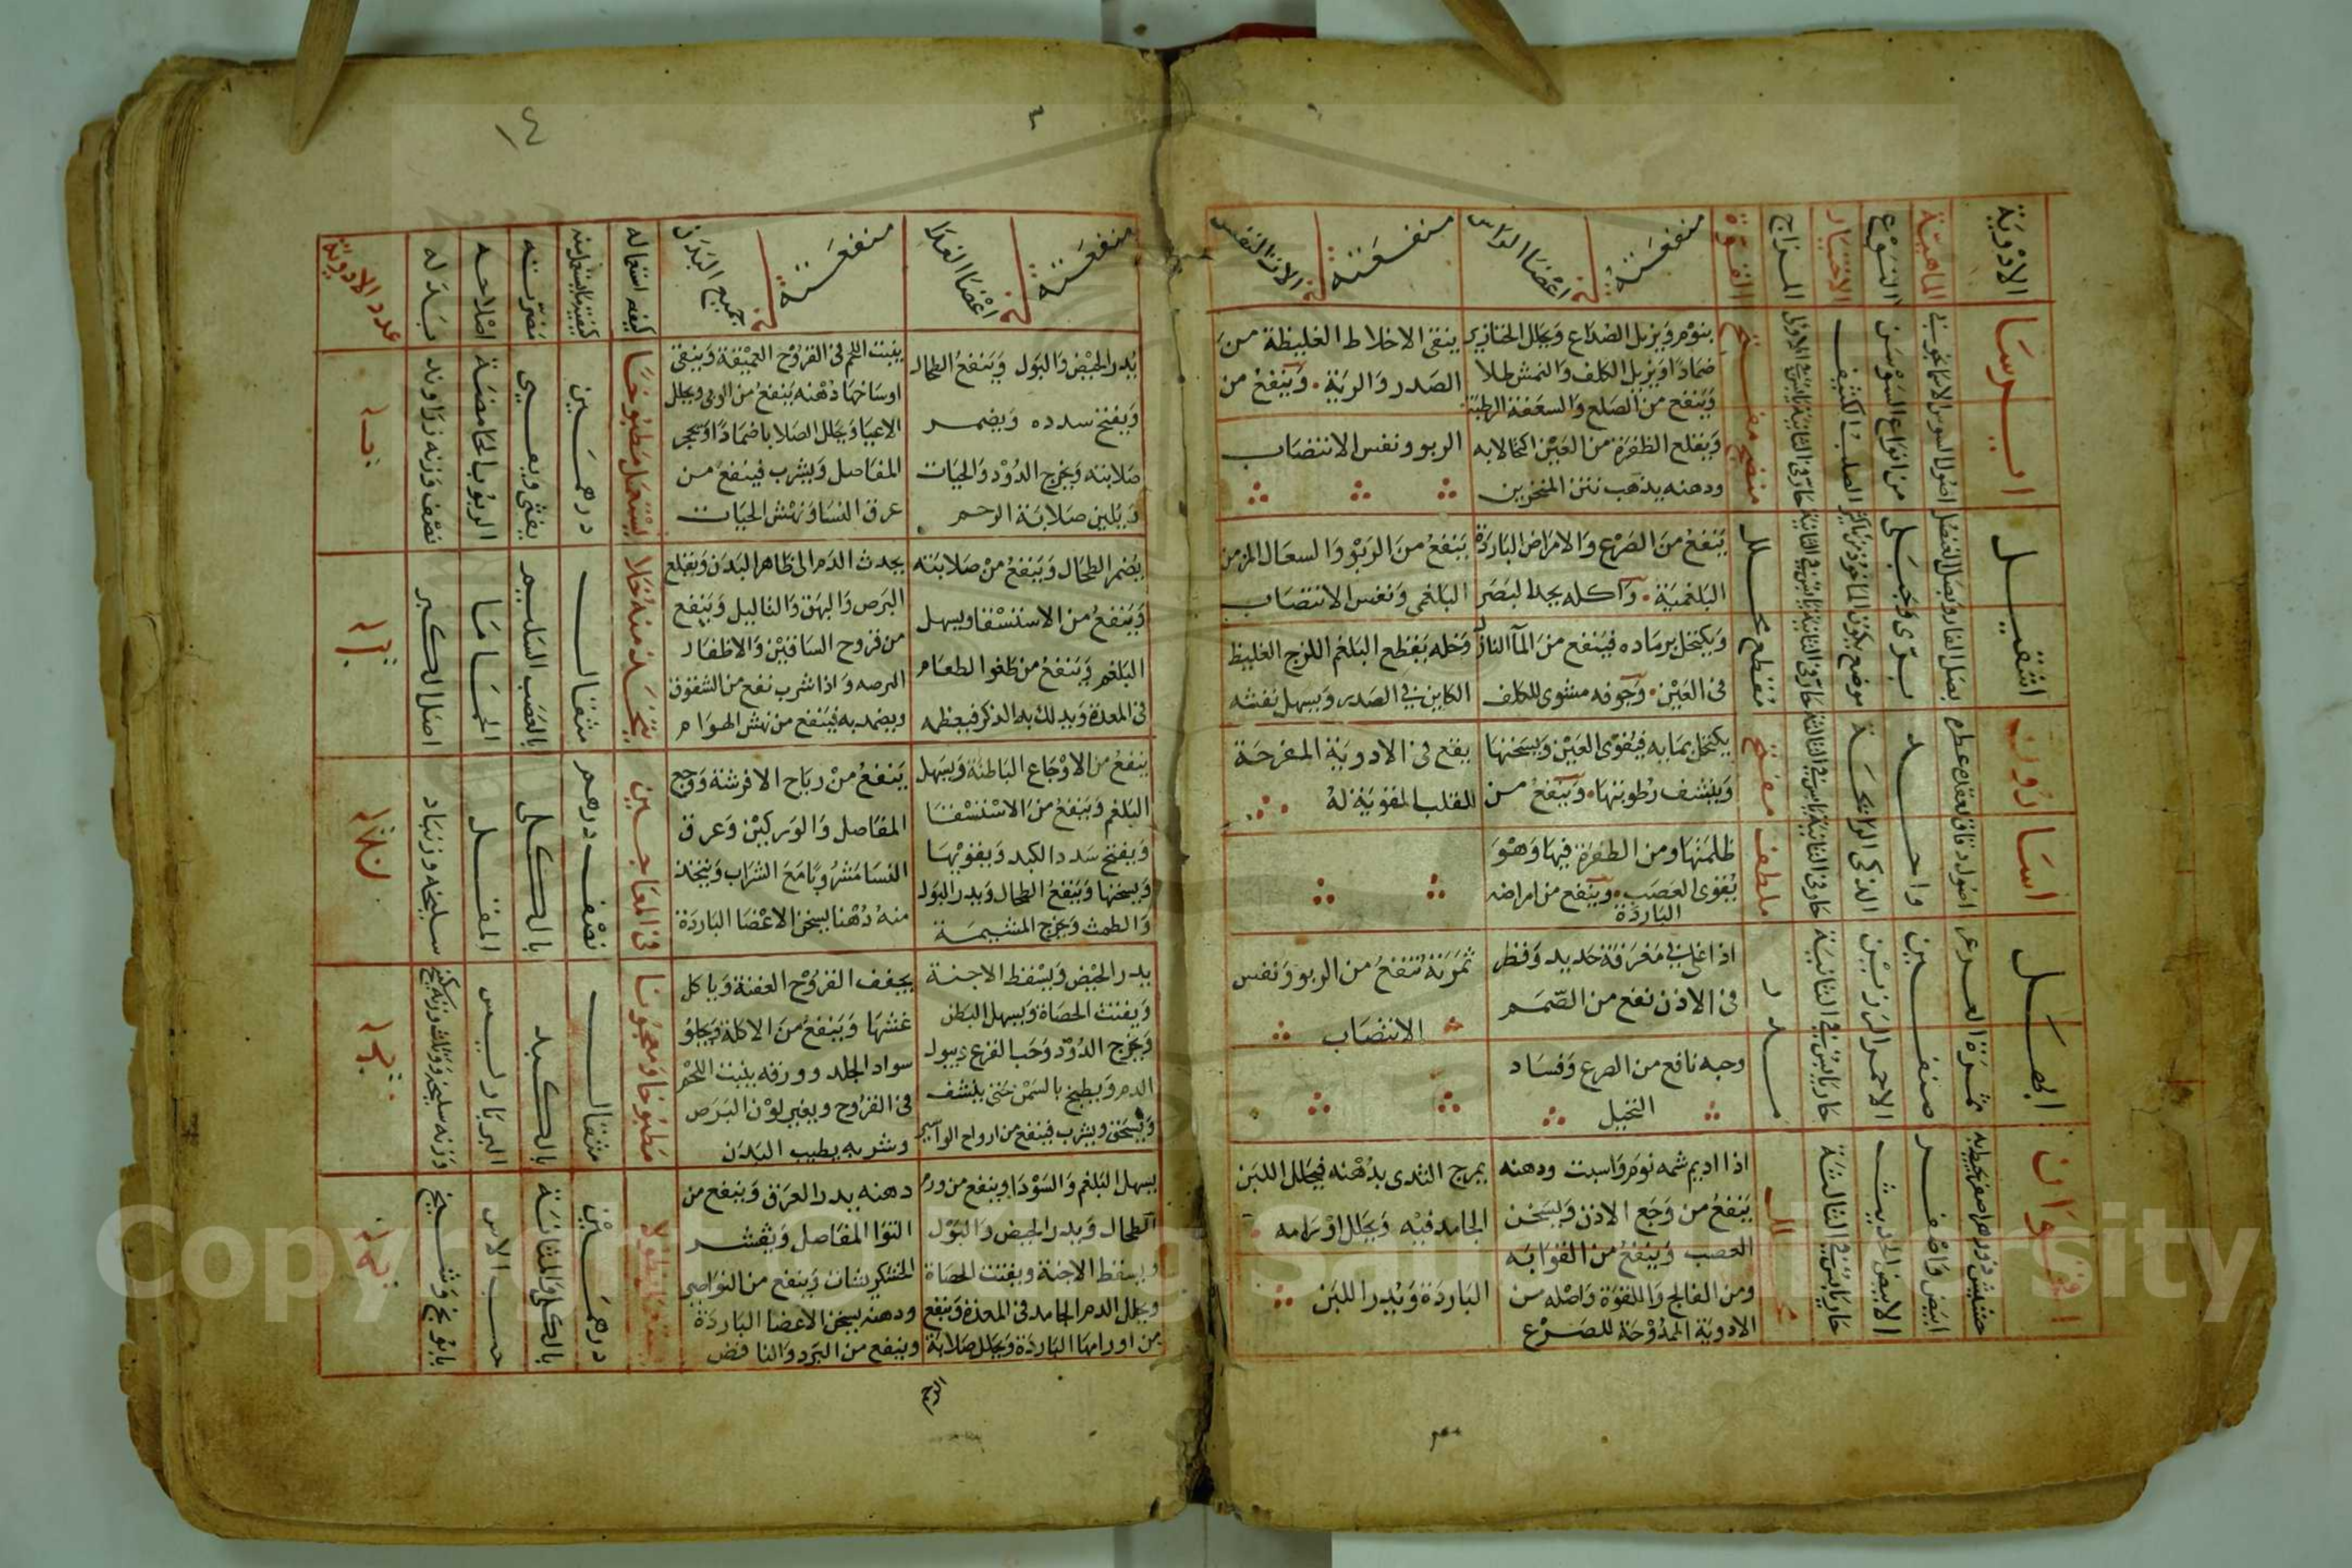 الأدوية
الماهية
النوع
الاختيار
المزاج
القوة
منفعته في اعضا الراس
منفعته في الات النفس
ايرسا
اصول السوسن الاسمانجوني
من انواع السوسن
الصلب الكثيف
منضج مفتح
ينوم ويزيل الصداع ويحلل الخنازير
ضمادا ويزيل الكلف والنمش طلا
وينفع من الصلع والسعفة الرطبة
ويقلع الظفرة من العين اكتحالا به
ودهنه يذهب نتن المنخرين
ينقي الاخلاط الغليظة من
الصدر والرية وينفع من
الربو ونفس الانتصاب
اشقيل
بصل الفار وبصل العنصل
بري وجبلي
مقطع محلل
ينفع من الصرع والامراض الباردة
البلغمية واكله يحد البصر
ويكتحل برماده فينفع من الما النازل
في العين وجوفه مشوي للكلف
ينفع من الربو والسعال المزمن
البلغمي ونفس الانتصاب
وخله يقطع البلغم اللزج الغليظ
الكاين في الصدر ويسهل نفثه
اسارون
واحد
الذكي الرائحة
ملطف مفتح
يكتحل بمايه فيقوي العين ويسخنها
وينشف رطوبتها وينفع من
ظلمتها ومن الظفرة فيها وهو
يقوي العصب وينفع من امراضه
الباردة
يقع في الادوية المفرحة
للقلب المقوية له
ابهل
ثمرة العرعر
صنفين
الاحمر الرزين
حار يابس في الثانية
مدر
اذا اغلي في مغرفة حديد وقطر
في الاذن نفع من الصمم
وحبه نافع من الصرع وفساد
التخيل
ثمرته تنفع من الربو ونفس
الانتصاب
اقحوان
ابيض واصفر
الابيض الحديث
حار يابس في الثالثة
اذا اديم شمه نوم واسبت ودهنه
ينفع من وجع الاذن ويسخن
العصب وينفع من القوابه
ومن الفالج واللقوة واصله من
الادوية الممدوحة للصرع
يمرخ الثدي بدهنه فيحلل اللبن
الجامد فيه ويحلل اورامه
الباردة ويدر اللبن
١٤
منفعته في اعضا الغذا
منفعته في جميع البدن
كيفية استعماله
كمية ما يستعمل منه
مضرته
اصلاحه
بدله
عدد الادوية
يدر الحيض والبول وينفع الطحال
ويفتح سدده ويضمر
صلابته ويخرج الدود والحيات
ويلين صلابة الرحم
ينبت اللحم في القروح العميقة وينقي
اوساخها دهنه ينفع من الوثي ويحلل
الاعيا ويحلل الصلابا ضمادا وتحجر
المفاصل ويشرب فينفع من
عرق النسا ونهش الحيات
يستعمل مطبوخا
درهمين
يغثي ويقيي
الربوب الحامضة
نصف وزنه زراوند
يضمر الطحال وينفع من صلابته
وينفع من الاستسقا ويسهل
البلغم وينفع من طفوا الطعام
في المعدة ويدلك به الذكر فيعظمه
يجدث الدم الى ظاهر البدن ويقلع
البرص والبهق والثاليل وينفع
من قروح الساقين والاظفار
البرصه واذا شرب نفع من الشقوق
ويضمد به فينفع من نهش الهوام
يتخذ منه خلا
مثقال
بالعصب السليم
الحماما
اصل الكبر
ينفع من الاوجاع الباطنة ويسهل
البلغم وينفع من الاستسقا
ويفتح سدد الكبد ويقويها
ويسخنها وينفع الطحال ويدر البول
والطمث ويخرج المشيمة
ينفع من رياح الافرشة ووجع
المفاصل والوركين وعرق
النسا مشروبا مع الشراب ويتخذ
منه دهنا يسخن الاعضا الباردة
في المعاجين
نصف درهم
بالكلى
المقل
سليخه وزنباد
يدر الحيض ويسقط الاجنة
ويفتت الحصاة ويسهل البطن
ويخرج الدود وحب القرع ويبول
الدم ويطبخ بالسمن حتى ينشف
ويسحق ويشرب فينفع من ارواح البواسير
يجفف القروح العفنة وياكل
غشها وينفع من الاكلة ويجلو
سواد الجلد وورقه ينبت اللحم
في القروح ويغير لون البرص
وشربه يطيب البدن
مطبوخا ومعجونا
مثقال
بالكبد
البرباريس
يسهل البلغم والسودا وينفع من ورم
الطحال ويدر الحيض والبول
ويسقط الاجنة ويفتت الحصاة
ويحلل الدم الجامد في المعدة وينفع
من اورامها الباردة ويحلل صلابة
الرحم
دهنه يدر العرق وينفع من
التوا المفاصل ويقشر
الخشكريشات وينفع من النواصير
ودهنه يسخن الاعضا الباردة
وينفع من البرد والنافض
درهمين
بالكلى والمثانة
حب الاس
بابونج وشيح
Copyright © King Saud University